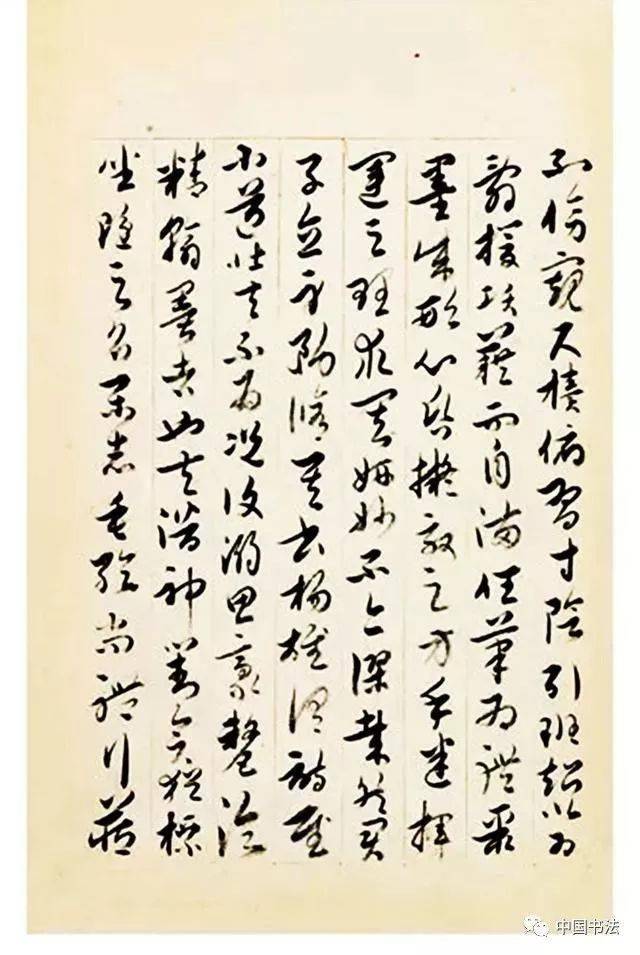 不傍窺尺牘俯習寸陰引班超以為
辭援項籍而自滿任筆為體聚
墨成形心昏擬效之方手迷揮
運之理求其妍妙不亦謬哉然君
子立身務修其本楊雄謂詩賦
小道壯夫不為況復溺思豪釐淪
精翰墨者也夫潛神對奕猶標
坐隱之名樂志垂綸尚體行藏
中国书法